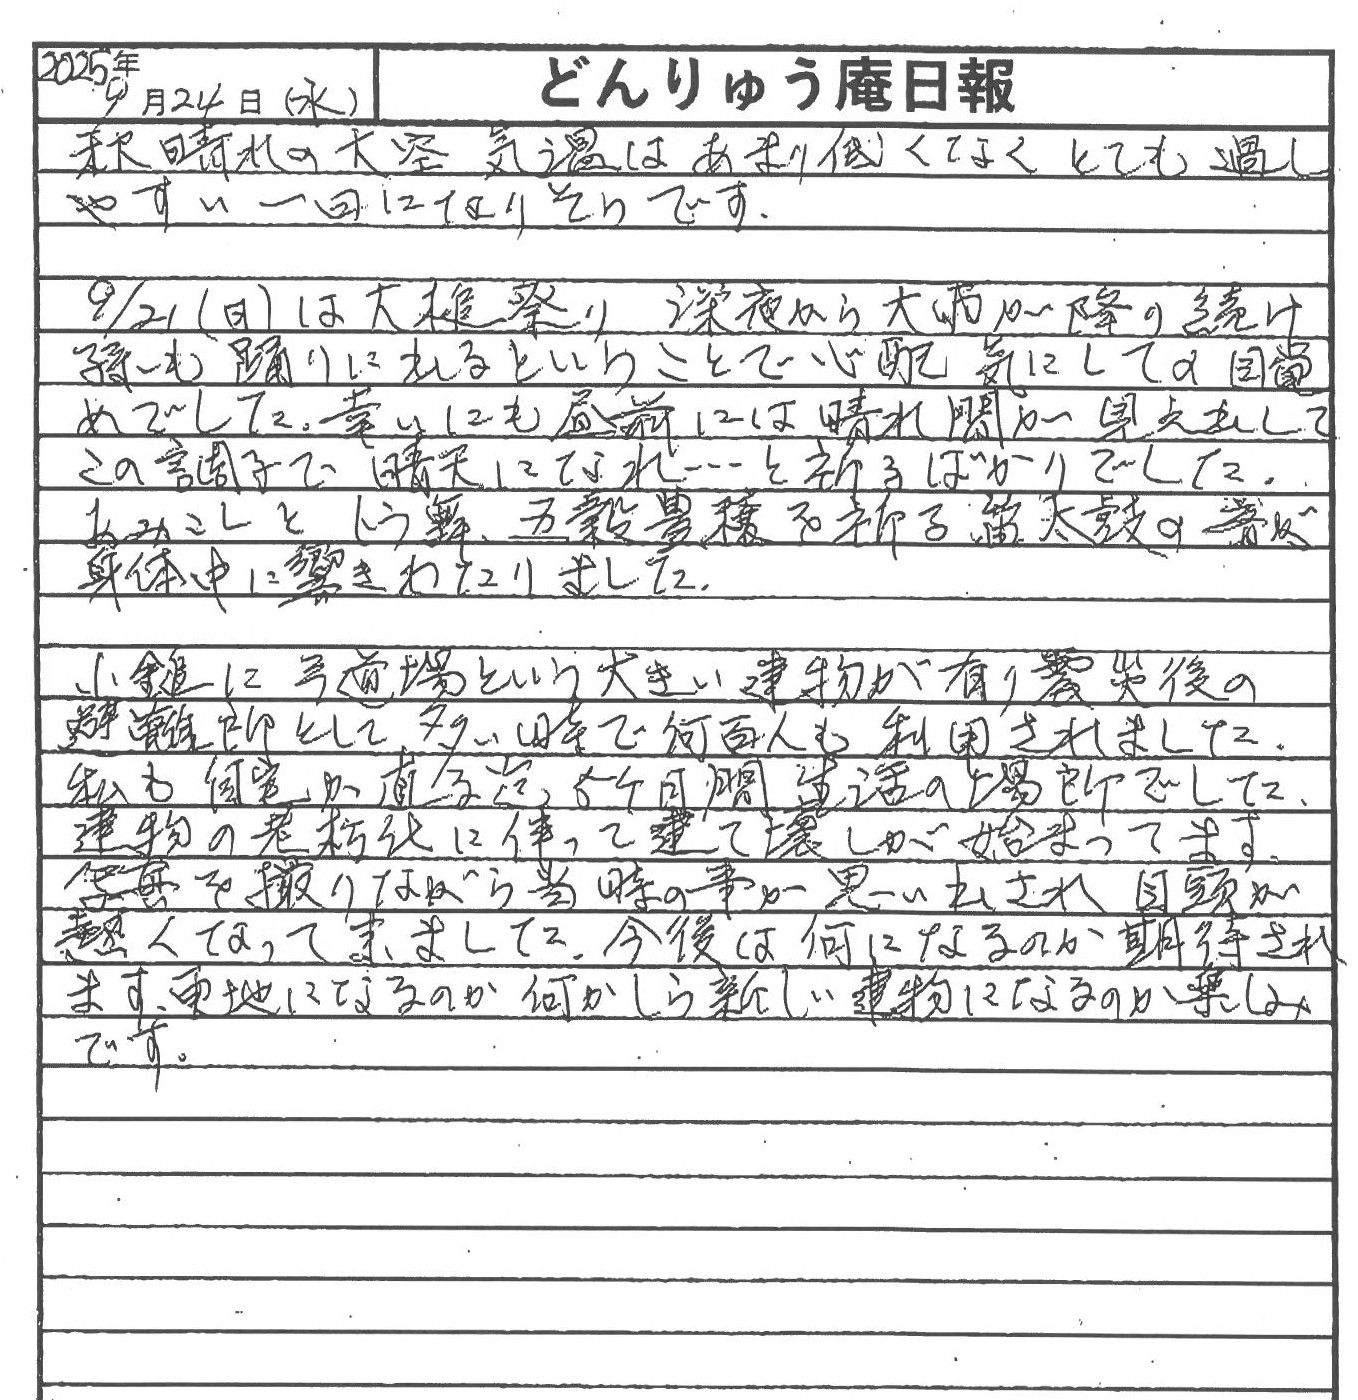 2025年
9月24日(水)
どんりゅう庵日報
秋晴れの大空 気温はあまり低くなく とても過し
やすい一日になりそうです.
9/21(日)は大槌祭り 深夜から大雨が降り続け
孫も踊りに出るということで心配 気にしての目覚
めでした. 幸いにも昼前には晴れ間が見え出して
この調子で晴天になれ…と祈るばかりでした.
おみこしと しう舞、五穀豊穣を祈る笛太鼓の音が
身体中に響きわたりました.
小鎚に弓道場という大きい建物が有り震災後の
避難所として多い時で何百人も利用されました.
私も自宅が直る迄、5ヶ月間生活の場所でした.
建物の老朽化に伴って建て壊しが始まってます.
写真を撮りながら当時の事が思い出され 目頭が
熱くなって来ました. 今後は何になるのか期待され
ます. 更地になるのか何かしら新しい建物になるのか楽しみ
です。